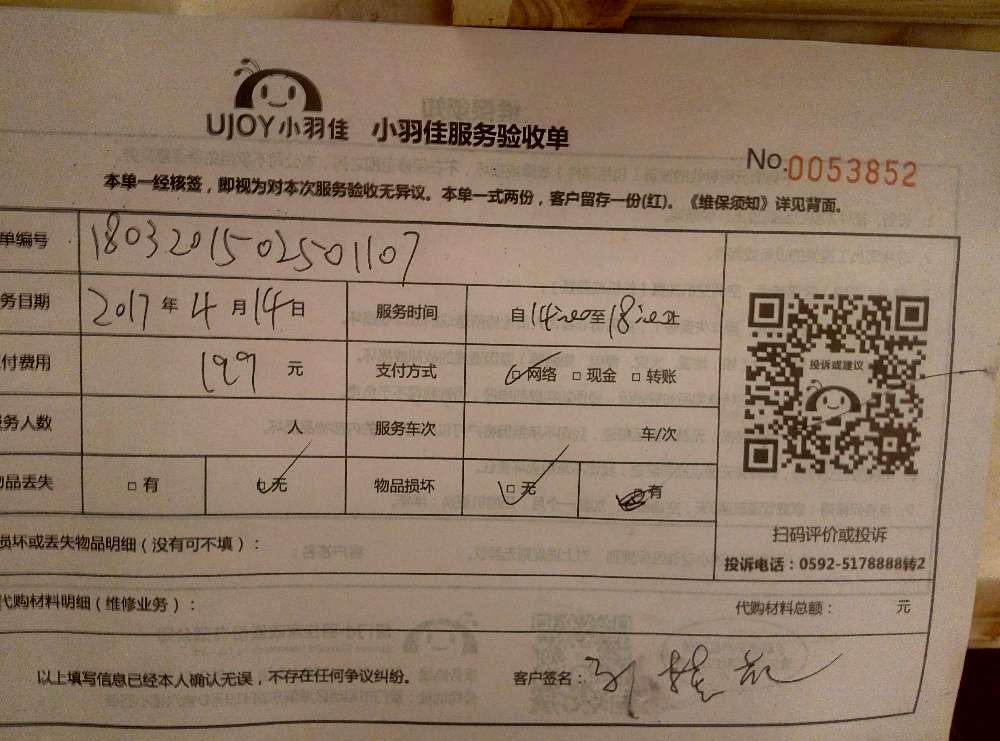 UJOY小羽佳 小羽佳服务验收单
No.0053852
本单一经核签，即视为对本次服务验收无异议。本单一式两份，客户留存一份(红)。《维保须知》详见背面。
单编号 1803201502501107
务日期 2017 年 4 月 14 日 服务时间 自14:00至18:00止
付费用 199 元 支付方式 网络 现金 转账
务人数 人 服务车次 车/次
物品丢失 有 无 物品损坏 无 有
投诉或建议
扫码评价或投诉
投诉电话：0592-5178888转2
损坏或丢失物品明细（没有可不填）：
代购材料明细（维修业务）： 代购材料总额： 元
以上填写信息已经本人确认无误，不存在任何争议纠纷。 客户签名：